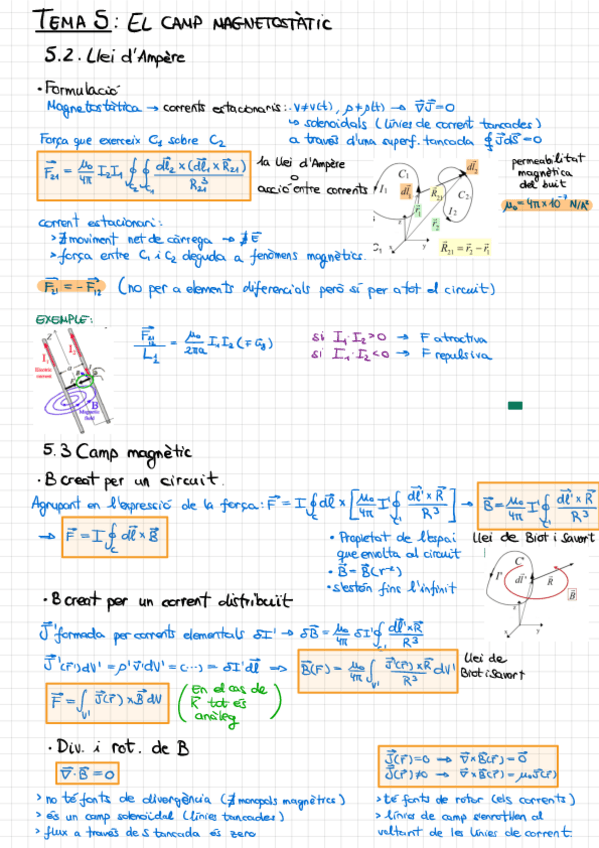 TEMA 5: EL CAMP MAGNETOSTÀTIC
5.2. Llei d'Ampère
• Formulació
Magnetostàtica → corrents estacionaris: v≠v(t), ρ≠ρ(t) → ∇J=0
↳ solenoidals (línies de corrent tancades)
Força que exerceix C₁ sobre C₂
a través d'una superf. tancada ∮J dS=0
F₂₁ = μ₀/4π I₂I₁ ∮∮ dl₂ × (dl₁ × R₂₁) / R₂₁³
1a Llei d'Ampère
o
acció entre corrents
C₁ I₁ dl₁ R₂₁ dl₂ C₂ I₂ r₁ r₂
R₂₁ = r₂ − r₁
permeabilitat
magnètica
del buit
μ₀ = 4π×10⁻⁷ N/A²
corrent estacionari:
> ∄ moviment net de càrrega → ∄ E
> força entre C₁ i C₂ deguda a fenòmens magnètics.
F₂₁ = − F₁₂ (no per a elements diferencials però sí per a tot el circuit)
EXEMPLE:
Electric
current
Magnetic
field
I₁ I₂ B
si I₁·I₂>0 → F atractiva
si I₁·I₂<0 → F repulsiva
5.3 Camp magnètic
• B creat per un circuit.
Agrupant en l'expressió de la força: F = I ∮ dl × [μ₀/4π I' ∮ dl' × R / R³] → B = μ₀/4π I' ∮ dl' × R / R³
→ F = I ∮ dl × B
• Propietat de l'espai
que envolta al circuit
• B = B(r⁻²)
• s'estén fins l'infinit
Llei de Biot i Savart
C' I' dl' R B
• B creat per un corrent distribuit
J' formada per corrents elementals δI' → δB = μ₀/4π δI' ∮ dl' × R / R³
J'(r')dV' = ρ'v'dV' = (...) = δI'dl' ⇒ B(r) = μ₀/4π ∫ J'(r') × R / R³ dV'
Llei de
Biot i Savart
F = ∫ J(r) × B dV
(En el cas de
R tot és
anàleg)
• Div. i rot. de B
∇·B = 0
J(r)=0 → ∇×B(r) = 0
J(r)≠0 → ∇×B(r) = μ₀J(r)
> no té fonts de divergència (∄ monopols magnètics)
> és un camp solenoidal (línies tancades)
> flux a través de S tancada és zero
> té fonts de rotor (els corrents)
> línies de camp s'enrotllen al
voltant de les línies de corrent.